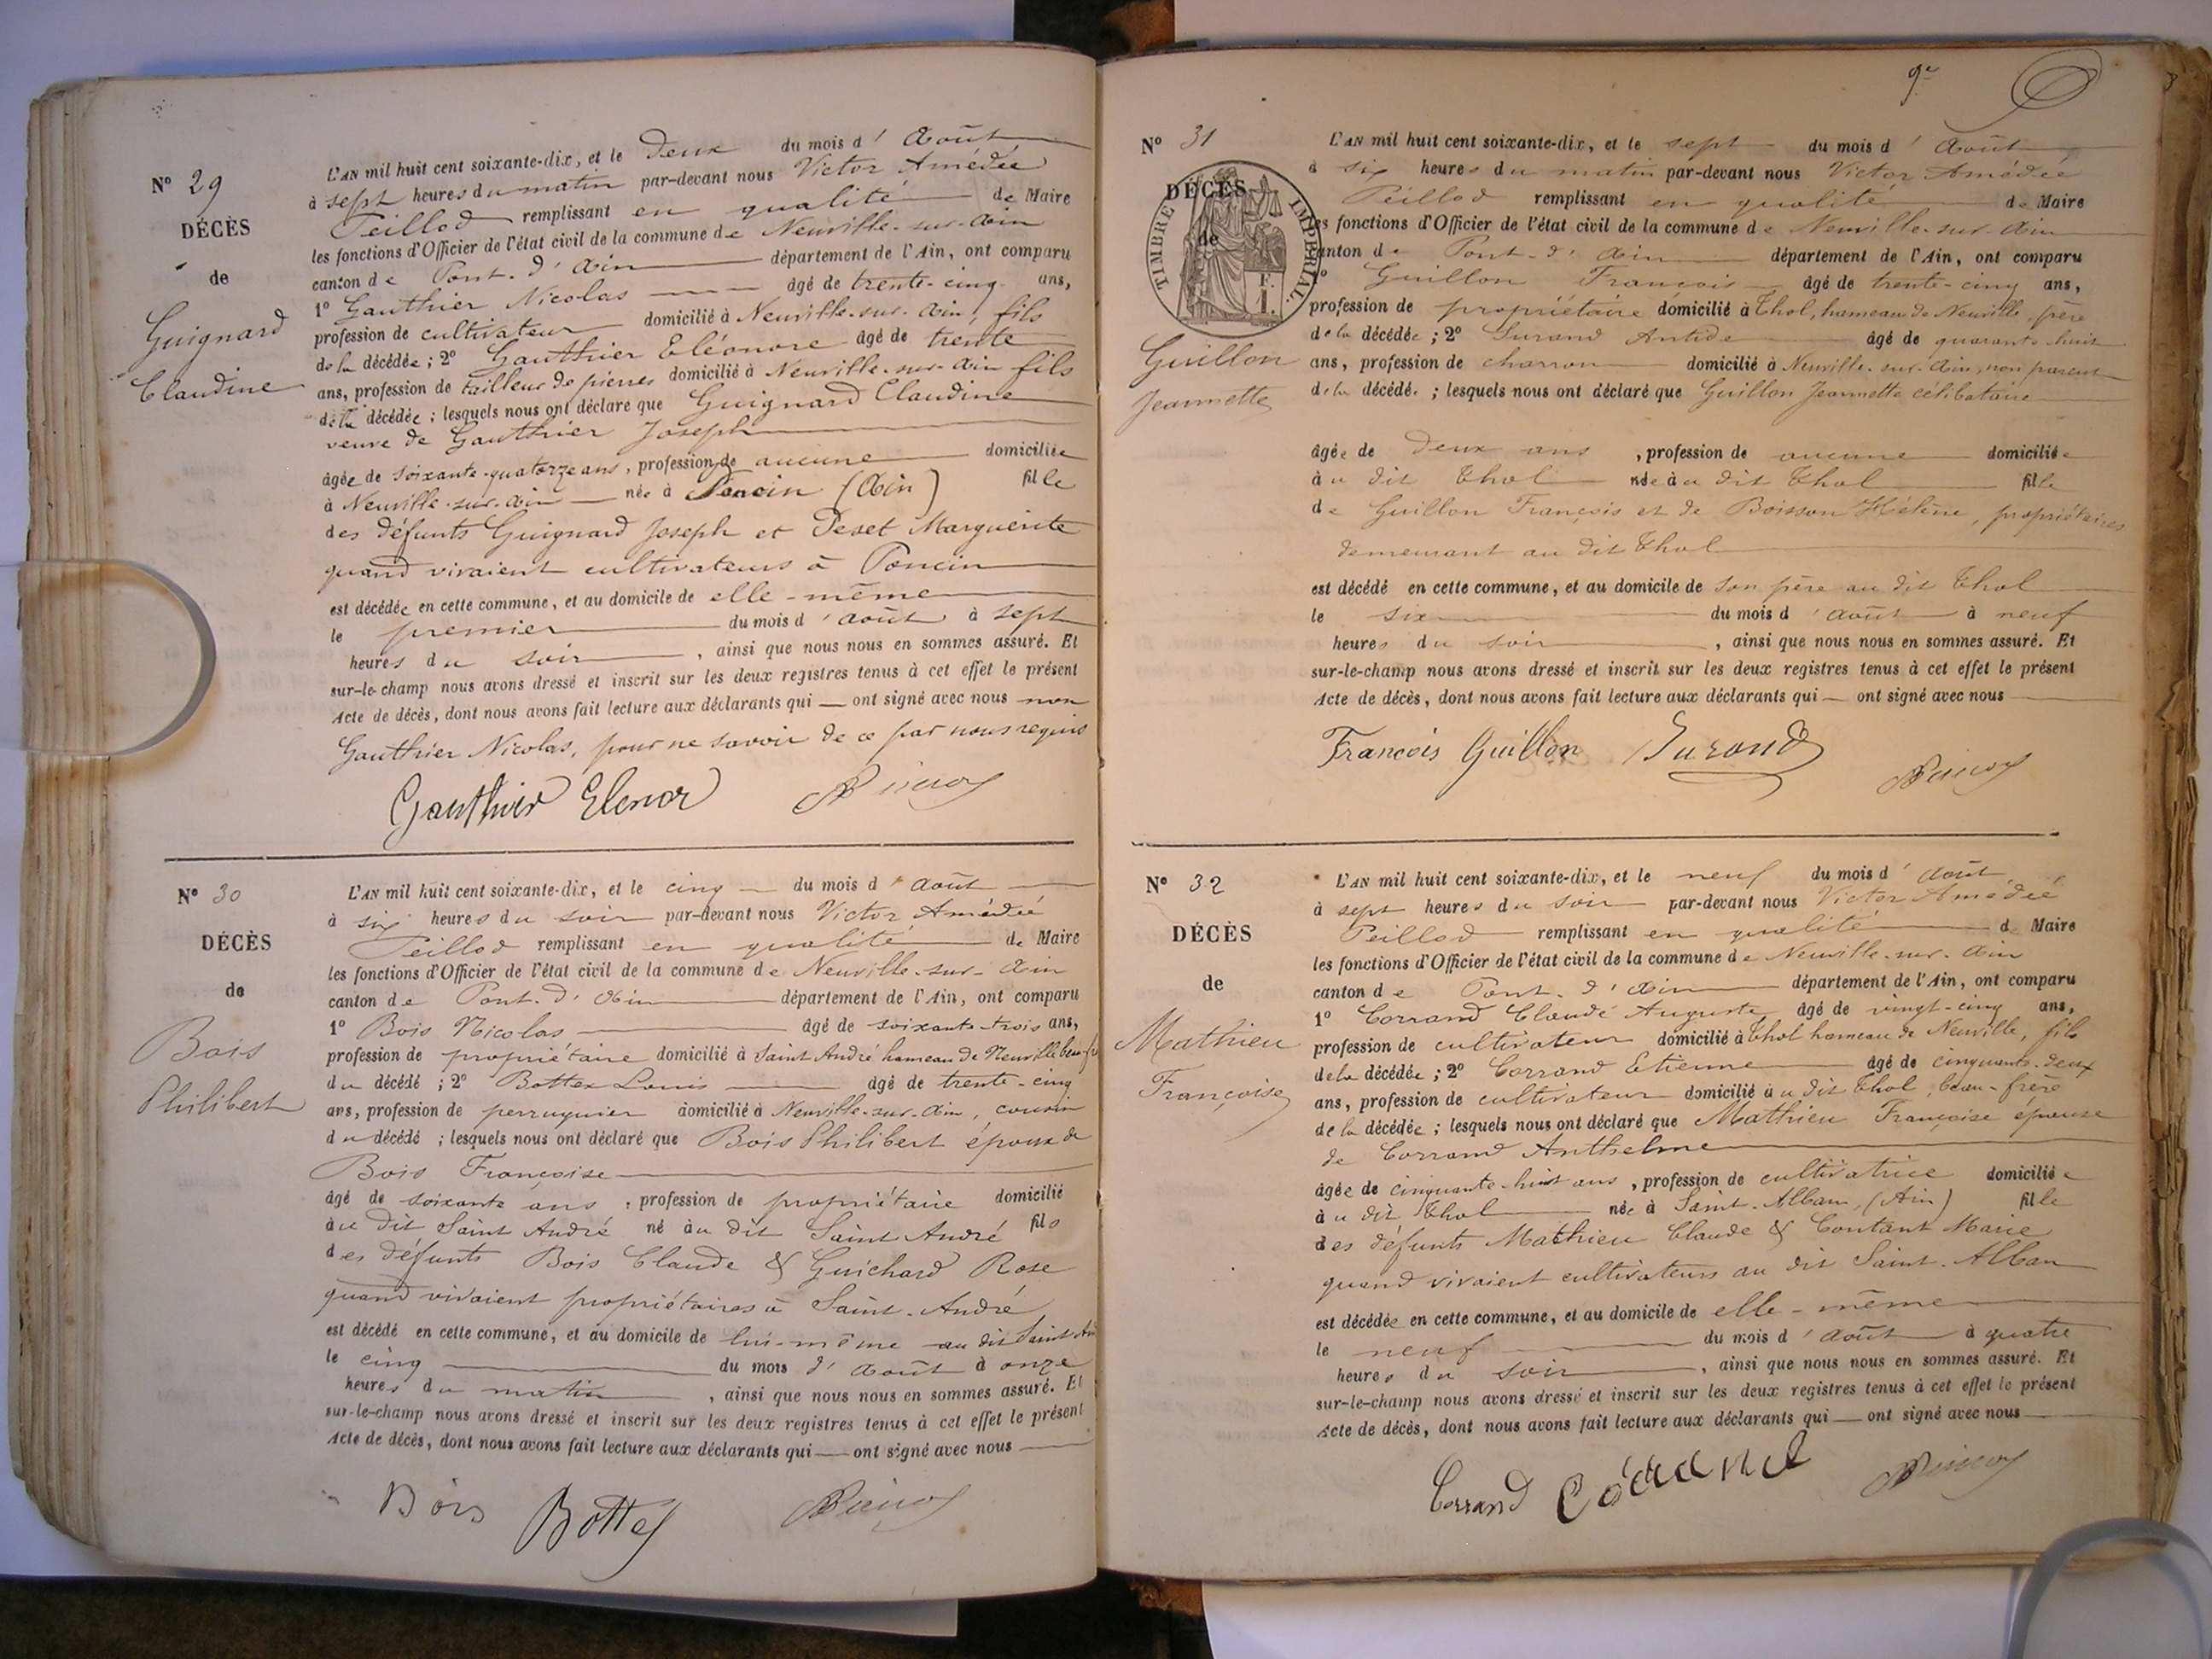 N° 29
DÉCÈS
de
Guignard
Claudine
L'AN mil huit cent soixante-dix, et le deux du mois d'Août
à sept heures du matin par-devant nous Victor Amédée
Peillod remplissant en qualité de Maire
les fonctions d'Officier de l'état civil de la commune de Neuville-sur-Ain
canton de Pont-d'Ain département de l'Ain, ont comparu
1° Gauthier Nicolas âgé de trente-cinq ans,
profession de cultivateur domicilié à Neuville-sur-Ain, fils
de la décédée ; 2° Gauthier Eléonore âgé de trente
ans, profession de tailleur de pierres domicilié à Neuville-sur-Ain fils
de la décédée ; lesquels nous ont déclaré que Guignard Claudine
veuve de Gauthier Joseph
âgée de soixante-quatorze ans, profession de aucune domiciliée
à Neuville-sur-Ain née à Poncin (Ain) fille
des défunts Guignard Joseph et Marguerite
quand vivaient cultivateurs à Poncin
est décédée en cette commune, et au domicile de elle-même
le premier du mois d'août à sept
heures du soir, ainsi que nous nous en sommes assuré. Et
sur-le-champ nous avons dressé et inscrit sur les deux registres tenus à cet effet le présent
Acte de décès, dont nous avons fait lecture aux déclarants qui — ont signé avec nous non
Gauthier Nicolas, pour ne savoir de ce par nous requis
Gauthier Elenor
N° 30
DÉCÈS
de
Bois
Philibert
L'AN mil huit cent soixante-dix, et le cinq du mois d'Août
à six heures du soir par-devant nous Victor Amédée
Peillod remplissant en qualité de Maire
les fonctions d'Officier de l'état civil de la commune de Neuville-sur-Ain
canton de Pont-d'Ain département de l'Ain, ont comparu
1° Bois Nicolas âgé de soixante-trois ans,
profession de propriétaire domicilié à Saint André hameau de Neuville
du décédé ; 2° Bottex Louis âgé de trente-cinq
ans, profession de perruquier domicilié à Neuville-sur-Ain, cousin
du décédé ; lesquels nous ont déclaré que Bois Philibert époux de
Bois Françoise
âgé de soixante ans, profession de propriétaire domicilié
au dit Saint André né au dit Saint André fils
des défunts Bois Claude & Guichard Rose
quand vivaient propriétaires à Saint-André
est décédé en cette commune, et au domicile de lui-même au dit Saint
le cinq du mois d'Août à onze
heures du matin, ainsi que nous nous en sommes assuré. Et
sur-le-champ nous avons dressé et inscrit sur les deux registres tenus à cet effet le présent
Acte de décès, dont nous avons fait lecture aux déclarants qui — ont signé avec nous
Bois Bottex
9e
N° 31
DÉCÈS
de
TIMBRE IMPERIAL
F.
1.
Guillon
Jeannette
L'AN mil huit cent soixante-dix, et le sept du mois d'Août
à six heures du matin par-devant nous Victor Amédée
Peillod remplissant en qualité de Maire
les fonctions d'Officier de l'état civil de la commune de Neuville-sur-Ain
canton de Pont-d'Ain département de l'Ain, ont comparu
1° Guillon François âgé de trente-cinq ans,
profession de propriétaire domicilié à Thol, hameau de Neuville, père
de la décédée ; 2° Antide âgé de quarante-huit
ans, profession de charron domicilié à Neuville-sur-Ain, non parent
de la décédée ; lesquels nous ont déclaré que Guillon Jeannette célibataire
âgée de deux ans, profession de aucune domiciliée
au dit Thol née au dit Thol fille
de Guillon François et de Boisson Hélène, propriétaires
demeurant au dit Thol
est décédé en cette commune, et au domicile de son père au dit Thol
le six du mois d'août à neuf
heures du soir, ainsi que nous nous en sommes assuré. Et
sur-le-champ nous avons dressé et inscrit sur les deux registres tenus à cet effet le présent
Acte de décès, dont nous avons fait lecture aux déclarants qui — ont signé avec nous
François Guillon
N° 32
DÉCÈS
de
Mathieu
Françoise
L'AN mil huit cent soixante-dix, et le neuf du mois d'Août
à sept heures du soir par-devant nous Victor Amédée
Peillod remplissant en qualité de Maire
les fonctions d'Officier de l'état civil de la commune de Neuville-sur-Ain
canton de Pont-d'Ain département de l'Ain, ont comparu
1° Corrand Claude Auguste âgé de vingt-cinq ans,
profession de cultivateur domicilié à Thol hameau de Neuville, fils
de la décédée ; 2° Corrand Etienne âgé de cinquante-deux
ans, profession de cultivateur domicilié au dit Thol, beau-frère
de la décédée ; lesquels nous ont déclaré que Mathieu Françoise épouse
de Corrand Anthelme
âgée de cinquante-huit ans, profession de cultivatrice domiciliée
au dit Thol née à Saint-Alban, (Ain) fille
des défunts Mathieu Claude & Contant Marie
quand vivaient cultivateurs au dit Saint-Alban
est décédée en cette commune, et au domicile de elle-même
le neuf du mois d'Août à quatre
heures du soir, ainsi que nous nous en sommes assuré. Et
sur-le-champ nous avons dressé et inscrit sur les deux registres tenus à cet effet le présent
Acte de décès, dont nous avons fait lecture aux déclarants qui — ont signé avec nous
Corrand